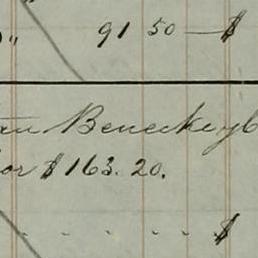 " 91 50 — $
Beneckeyb
or $163.20.
$